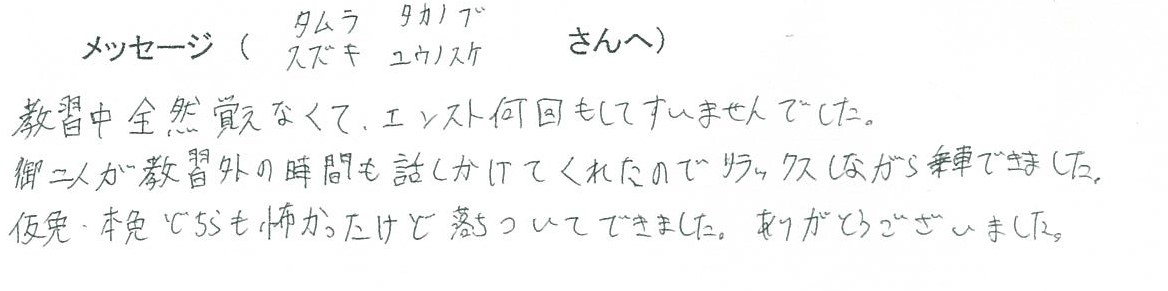 タムラ タカノブ
メッセージ( スズキ ユウノスケ さんへ)
教習中全然覚えなくて、エンスト何回もしてすいませんでした。
御二人が教習外の時間も話しかけてくれたのでリラックスしながら乗車できました。
仮免・本免どちらも怖かったけど落ちついてできました。ありがとうございました。